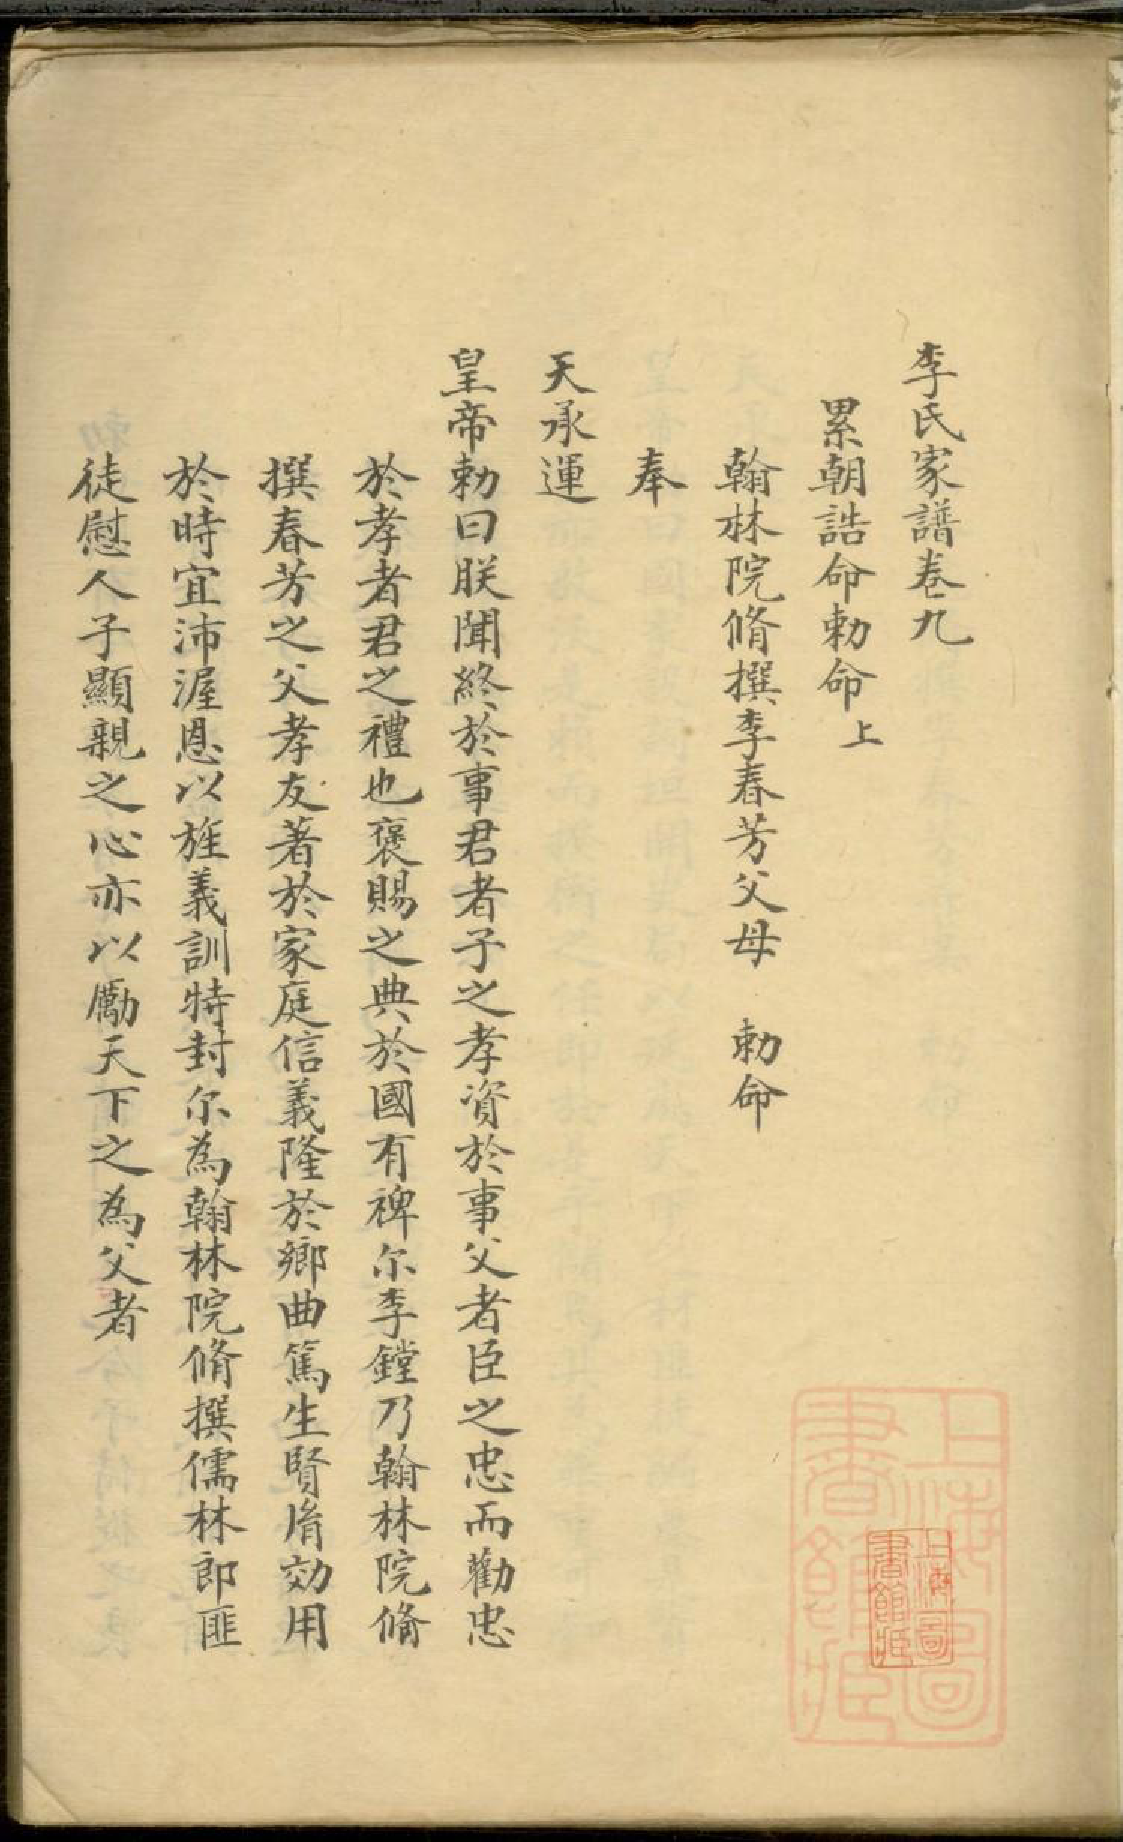 李氏家譜卷九
累朝誥命勅命上
翰林院脩撰李春芳父母　勅命
奉
天承運
皇帝勅曰朕聞終於事君者子之孝資於事父者臣之忠而勸忠
於孝者君之禮也褒賜之典於國有裨尔李鏜乃翰林院脩
撰春芳之父孝友著於家庭信義隆於鄉曲篤生賢胤効用
於時宜沛渥恩以旌義訓特封尔為翰林院脩撰儒林郎匪
徒慰人子顯親之心亦以勵天下之為父者
上海圖書館藏
上海圖書館藏